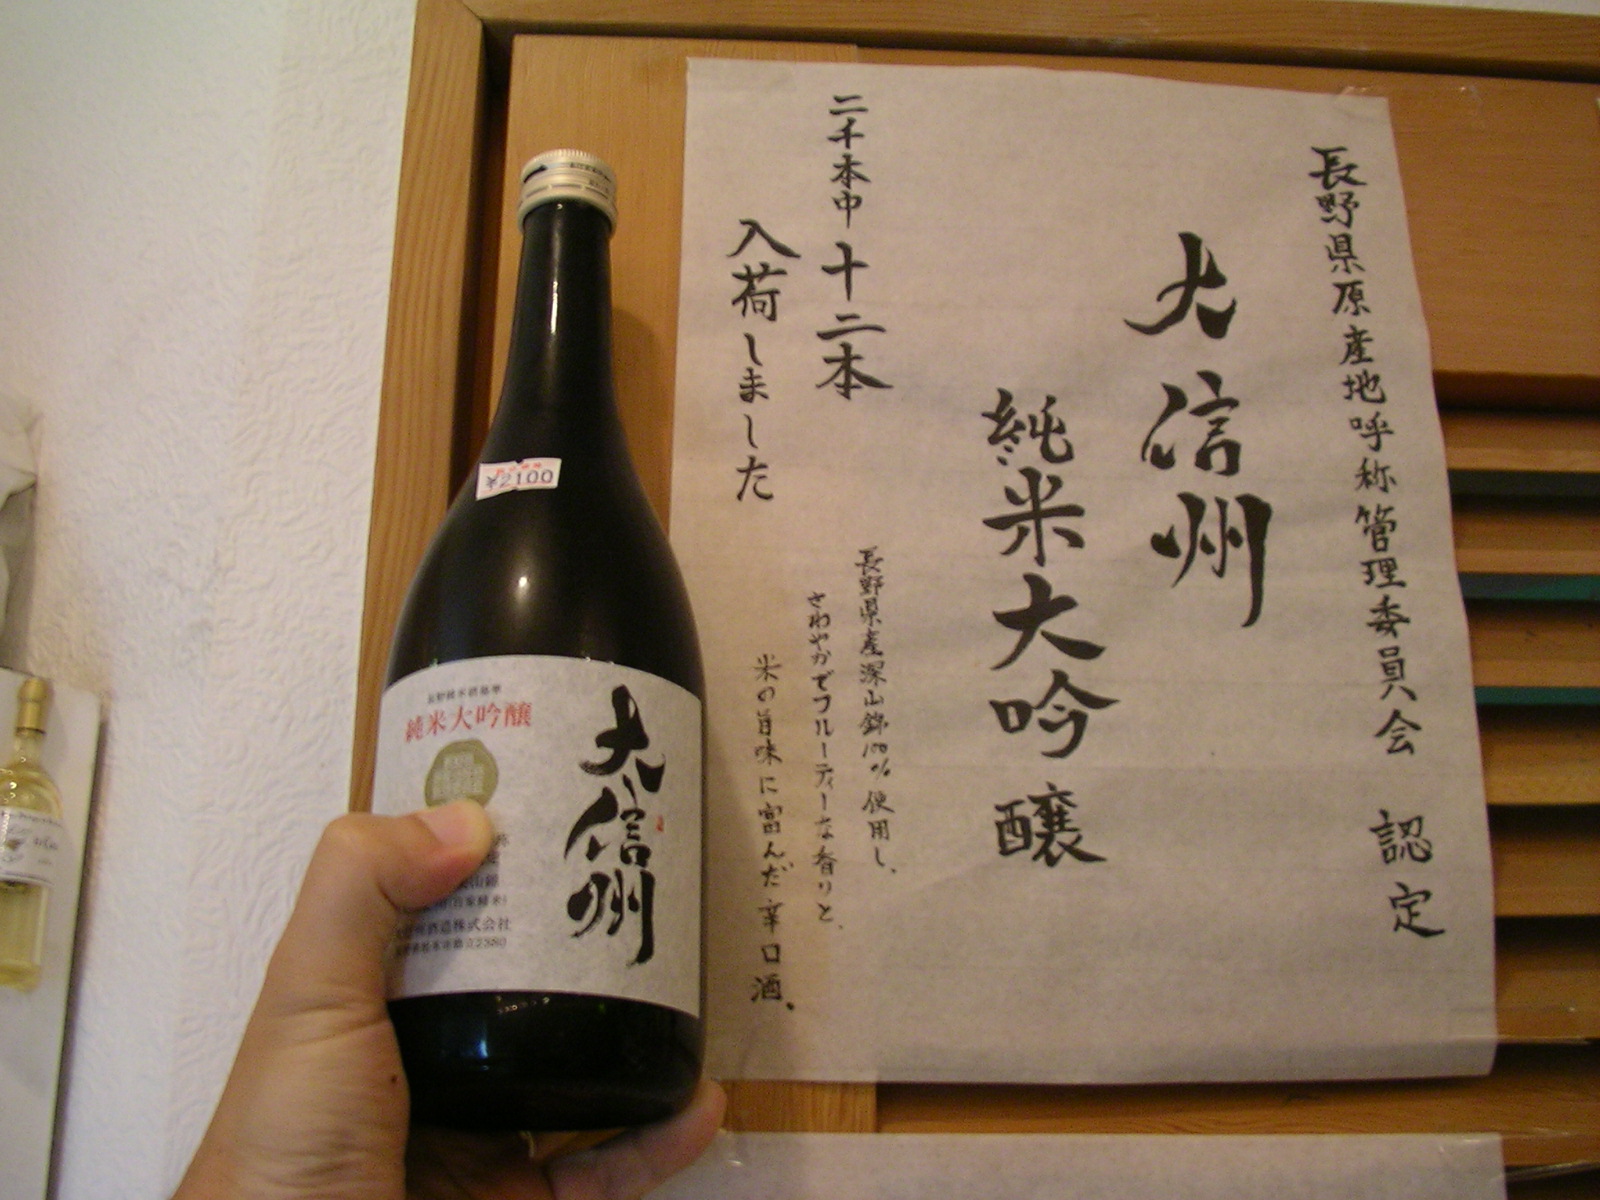 長野県原産地呼称管理委員会 認定
大信州
純米大吟醸
二千本中 十二本
入荷しました
長野県産深山錦100%使用し、
さわやかでフルーティーな香りと、
米の旨味に富んだ辛口酒。
¥2100
純米大吟醸
大信州
山錦
(自家精米)
酒造株式会社